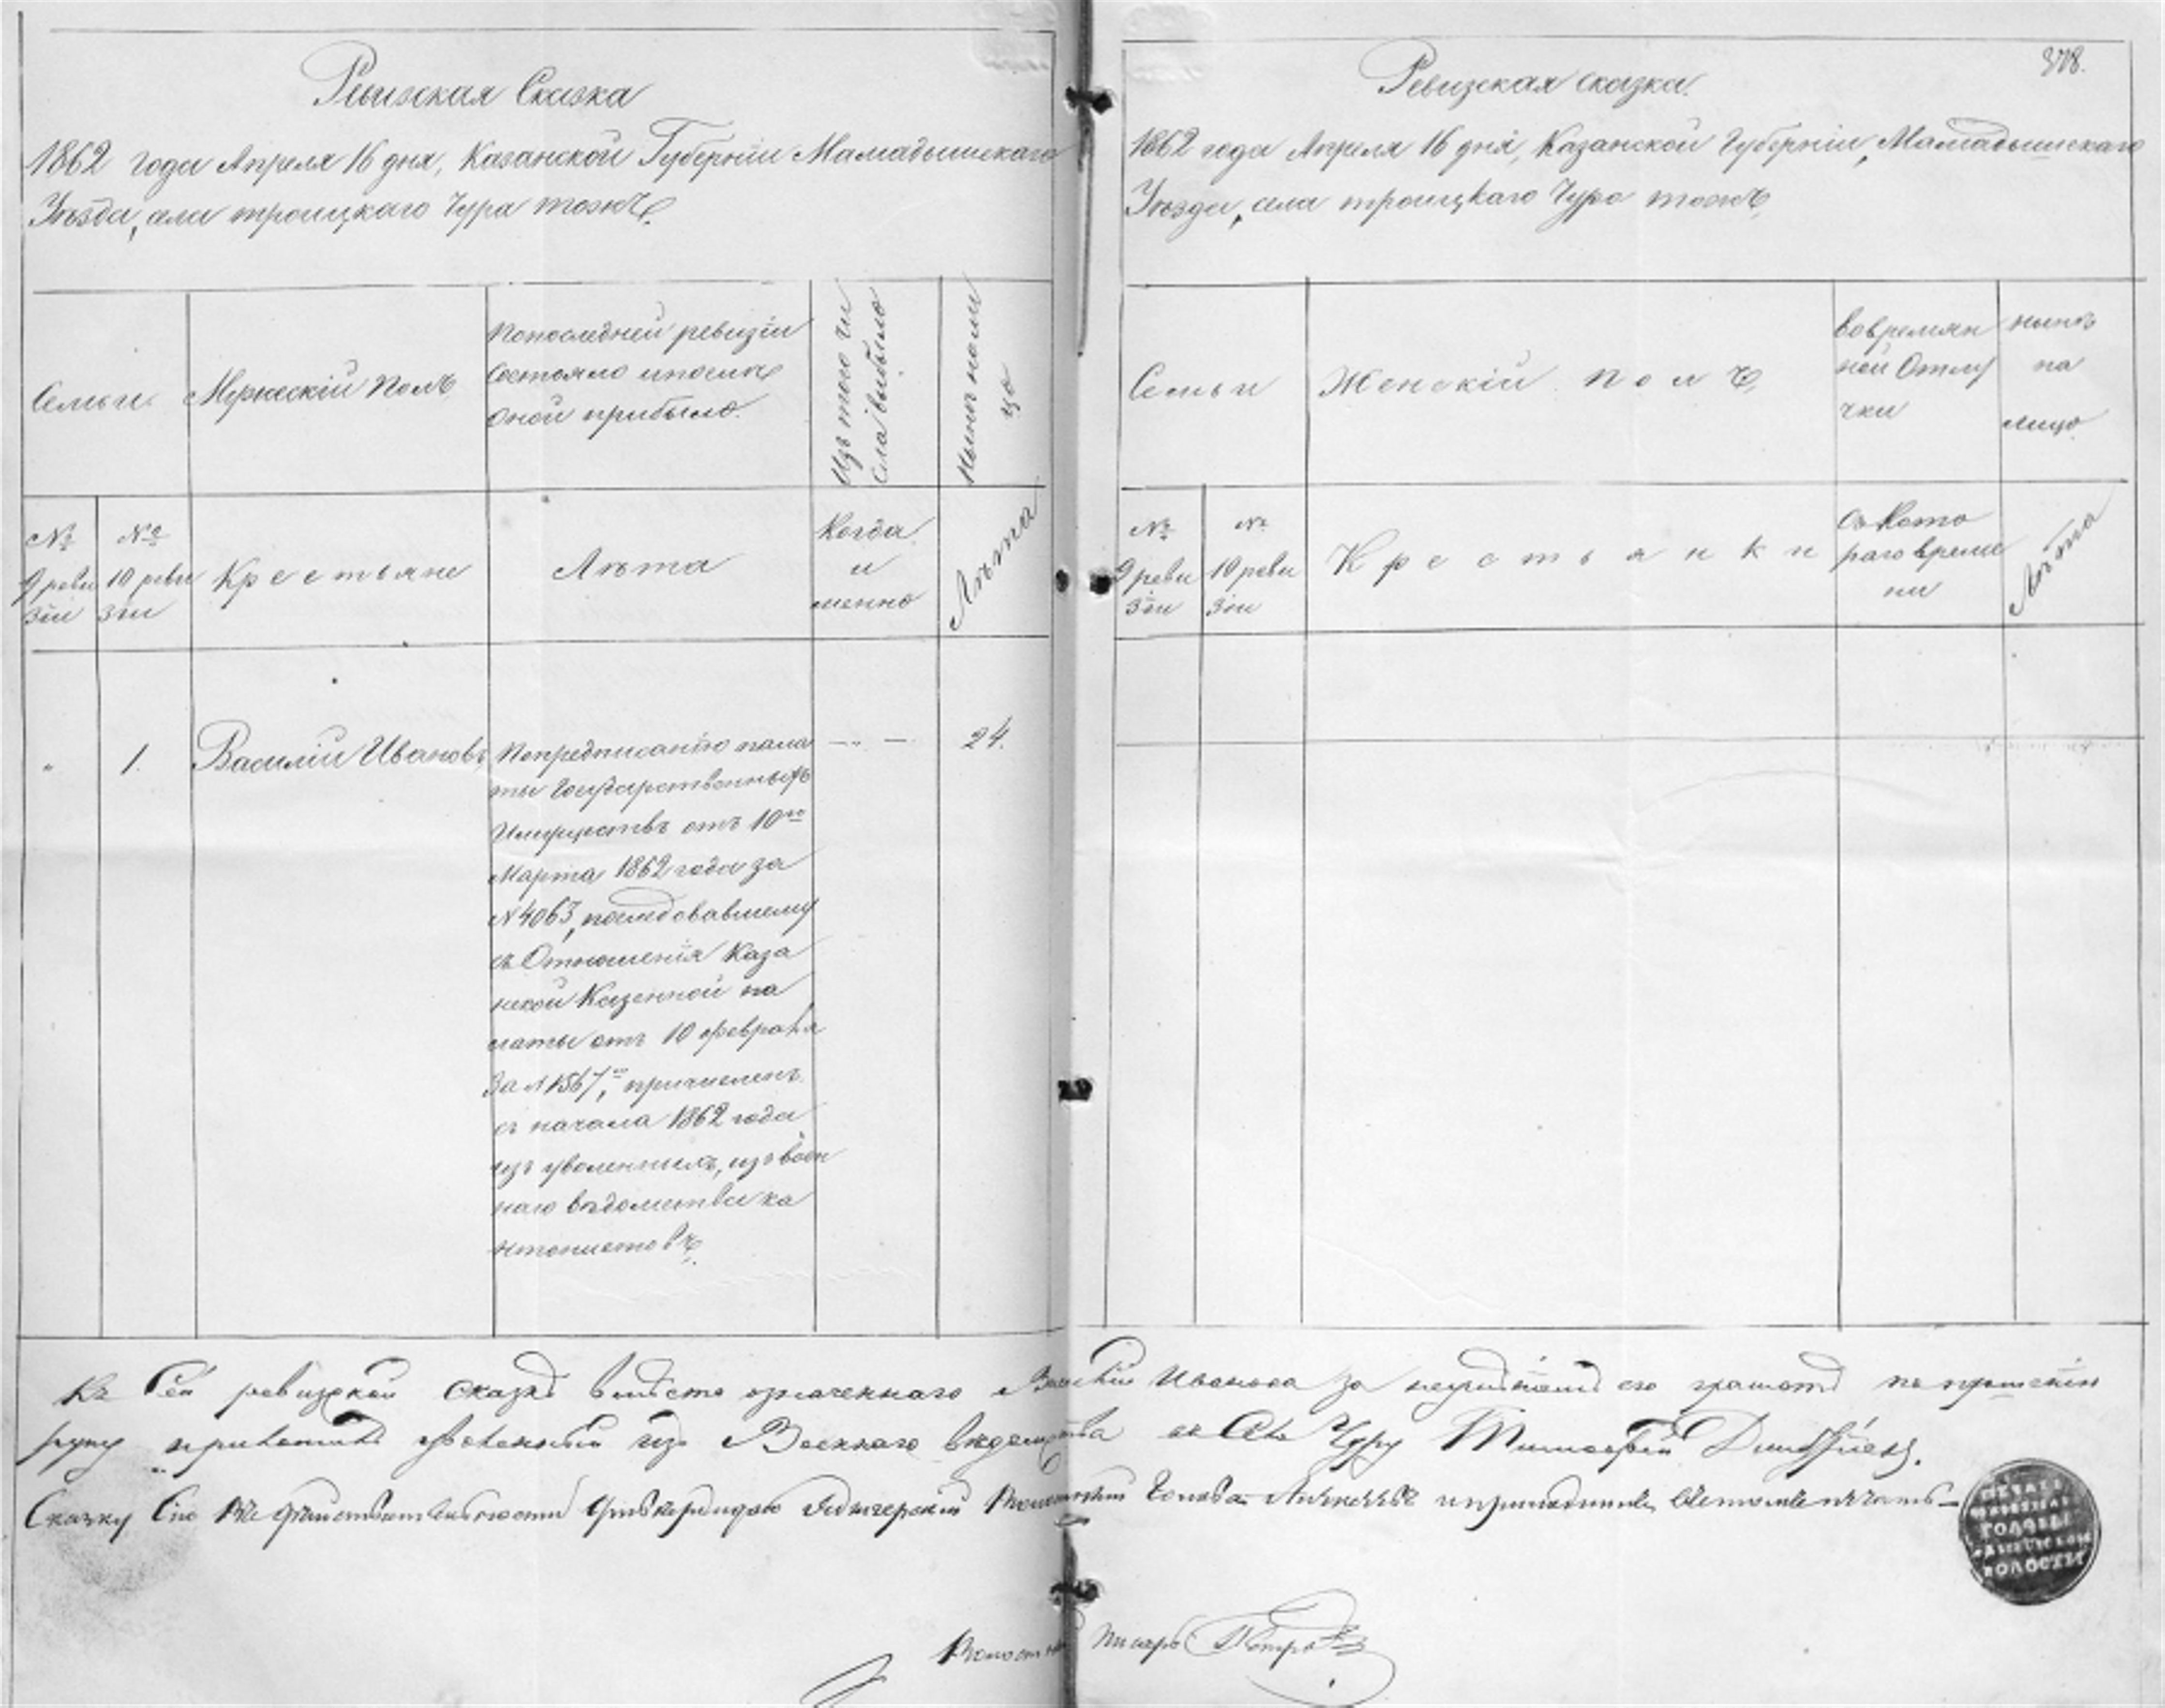 Ревизская Сказка
1862 года Апреля 16 дня, Казанской Губерніи Мамадышскаго
Уѣзда, села троицкаго Чура тожъ
Семьи.
Мужескій Полъ
Попоследней ревизіи
Состояло ипосля
Оной прибыло.
Изъ того чи
сла выбыло
Нынѣ нали
цо
№
9 реви
зіи
№
10 реви
зіи
Крестьяне
Лѣта
Когда
и
менно
Лѣта
"
1.
Василій Ивановъ
Попредписанію пала
ты Государственныхъ
Имуществъ отъ 10го
Марта 1862 года за
№ 4063, последовавшему
съ Отношенія Каза
нской Казенной па
латы отъ 10 февраля
За № 1567, причисленъ
съ начала 1862 года
изъ уволенныхъ, изъ воен
наго вѣдомства ка
нтонистовъ.
24.
378.
Ревизская сказка.
1862 года Апреля 16 дня, Казанской Губерніи, Мамадышскаго
Уѣзда, села троицкаго Чура тожъ
Семьи
Женскій полъ
вовремян
ной Отлу
чки
нынѣ
на
лицо
№
9 реви
зіи
№
10 реви
зіи
Крестьянки
Съ Кото
раго време
ни
Лѣта
Къ Сей ревизской сказкѣ вмѣсто означеннаго Василія Иванова за неумѣніемъ его грамотѣ попрошенію
руку приложилъ уволенный изъ Военнаго вѣдомства Чуру Тимофей
Сказку Сію въ Голова и приложеніемъ печать
Волостной Писарь Петровъ
ПЕЧАТЬ
ГОЛОВЫ
ВОЛОСТИ